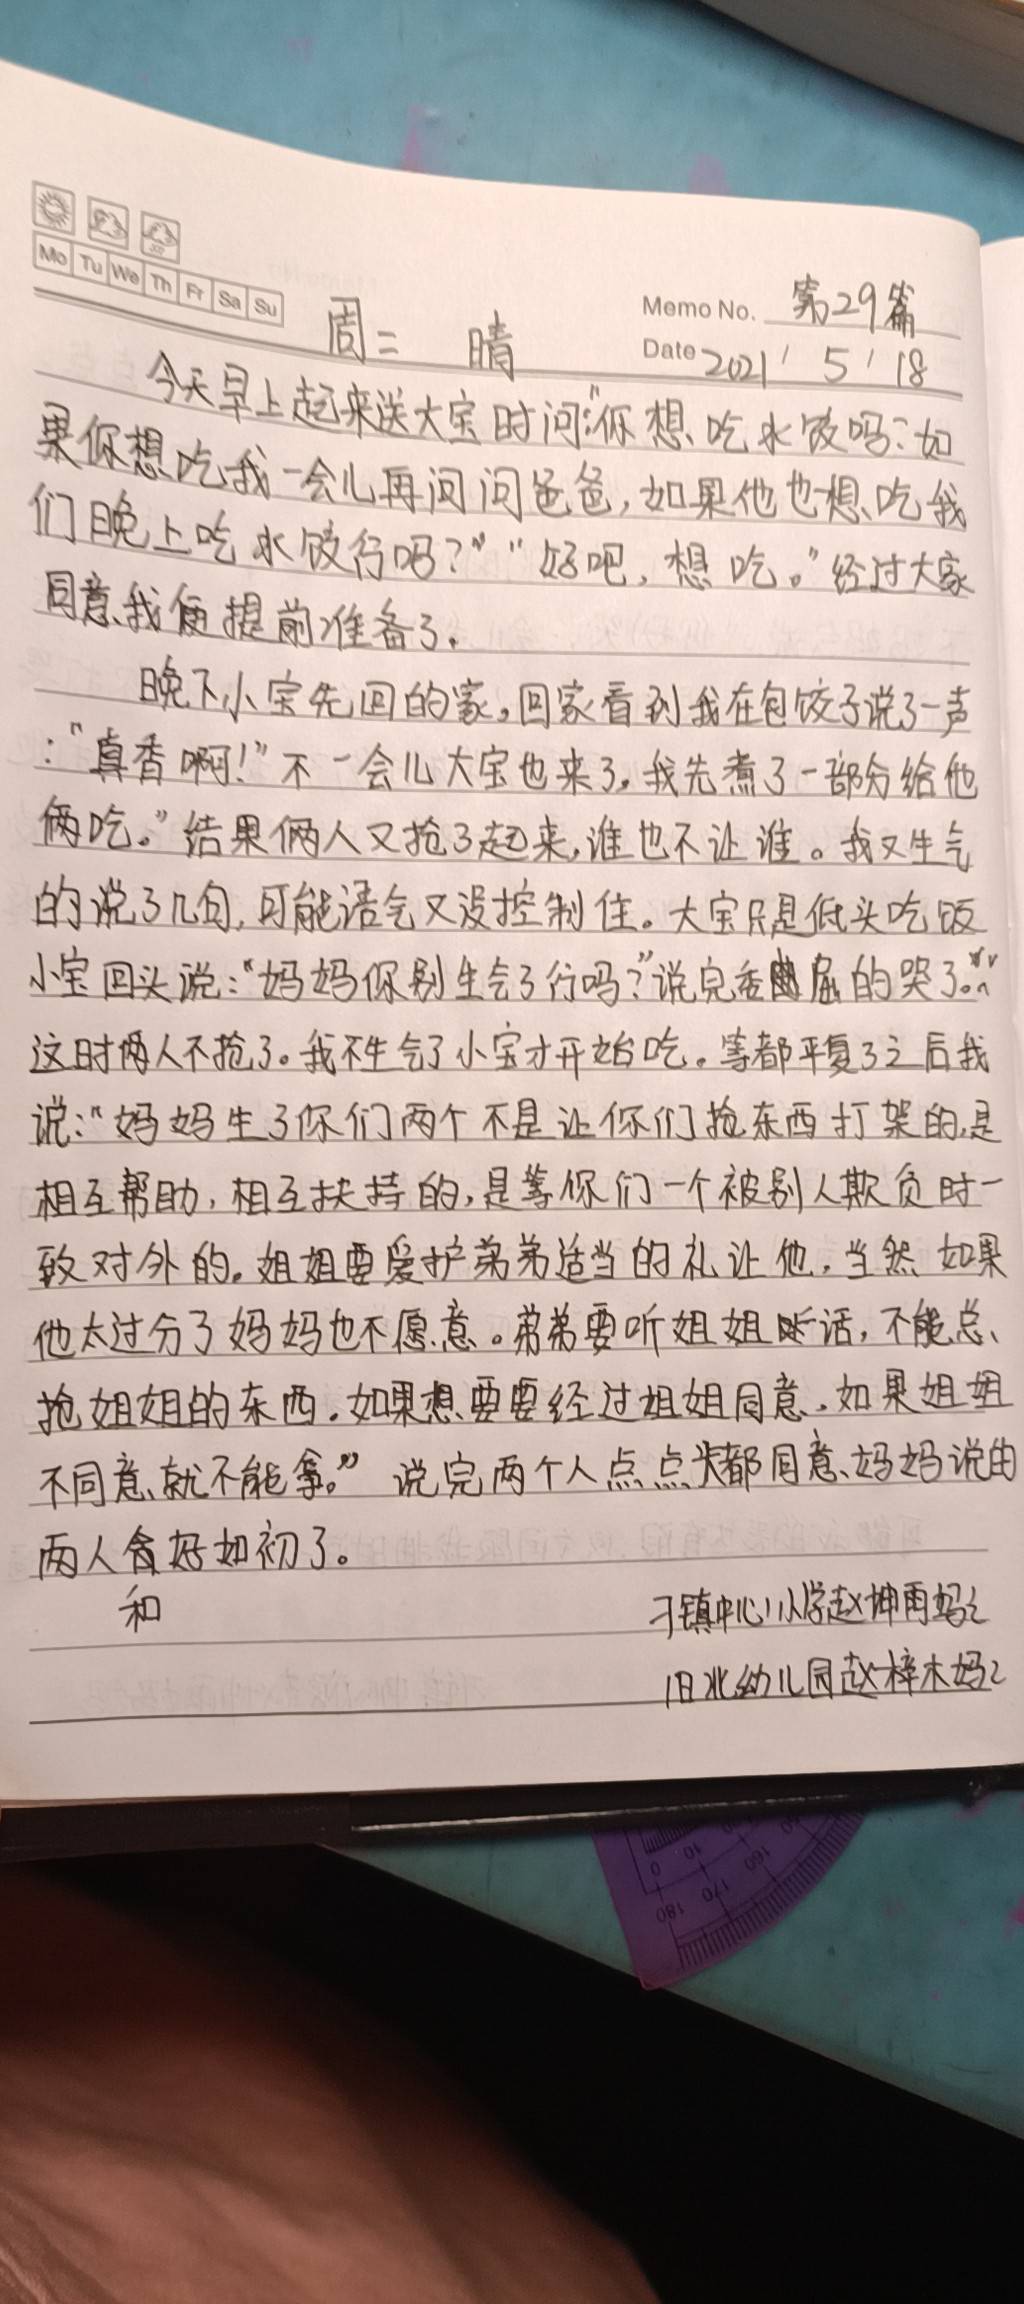 Mo Tu We Th Fr Sa Su
Memo No. 第29篇
Date 2021 / 5 / 18
周二 晴
今天早上起来送大宝时问:“你想吃水饺吗?如
果你想吃我一会儿再问问爸爸,如果他也想吃我
们晚上吃水饺行吗?”“好吧,想吃。”经过大家
同意我便提前准备了.
晚下小宝先回的家,回家看到我在包饺子说了一声
:“真香啊!”不一会儿大宝也来了,我先煮了一部分给他
俩吃。”结果俩人又抢了起来,谁也不让谁。我又生气
的说了几句,可能语气又没控制住。大宝只是低头吃饭
小宝回头说:“妈妈你别生气了行吗?”说完委屈的哭了。
这时俩人不抢了。我不生气了小宝才开始吃。等都平复了之后我
说:“妈妈生了你们两个不是让你们抢东西打架的,是
相互帮助,相互扶持的,是等你们一个被别人欺负时一
致对外的。姐姐要爱护弟弟适当的礼让他,当然如果
他太过分了妈妈也不愿意。弟弟要听姐姐话,不能总
抢姐姐的东西.如果想要要经过姐姐同意,如果姐姐
不同意就不能拿。”说完两个人点点头都同意妈妈说的
两人和好如初了。
刁镇中心小学赵坤雨妈妈
旧北幼儿园赵梓木妈妈
0 10 180 170 160